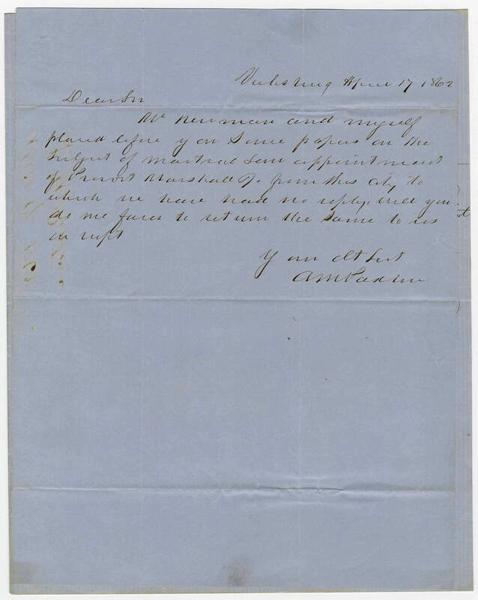 Vicksburg April 17 1862
Dear Sir
Mr Newman and myself
placed before you some papers on the
subject of martial Law appointment
of Provost Marshall &c. for this city to
which we have had no reply, will you
do me favor to return the same to us
or reply
Your Obt Svt